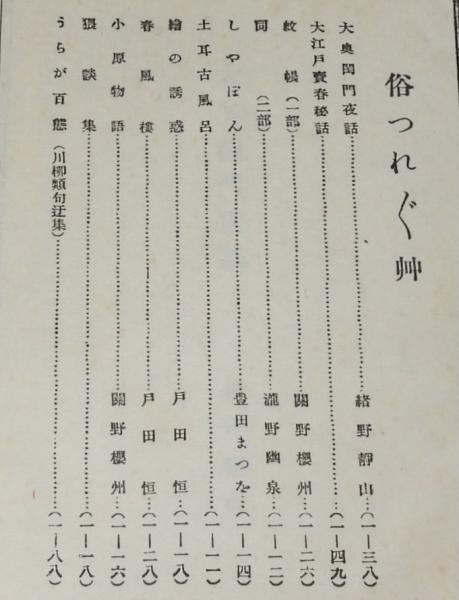 俗つれ〴〵艸
大奥閨門夜話……緒野靜山…(一—三八)
大江戸賣春秘話……(一—四九)
蚊帳(一部)……關野櫻州…(一—二六)
同(二部)……瀧野幽泉…(一—一二)
しやぼん……豊田まつを…(一—一四)
土耳古風呂……(一—一一)
繪の誘惑……戸田恒…(一—一八)
春風樓……戸田恒…(一—二八)
小原物語……關野櫻州…(一—一六)
猥談集……(一—一八)
うらが百態(川柳類句迂集)……(一—八八)